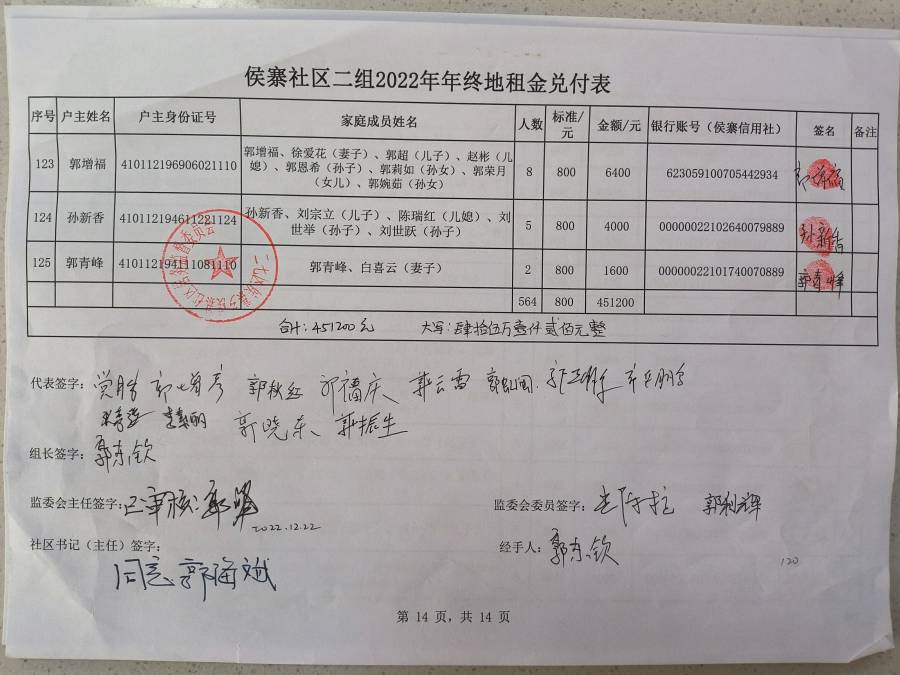 侯寨社区二组2022年年终地租金兑付表
序号 户主姓名 户主身份证号 家庭成员姓名 人数 标准/元 金额/元 银行账号（侯寨信用社） 签名 备注
123 郭增福 410112196906021110 郭增福、徐爱花（妻子）、郭超（儿子）、赵彬（儿媳）、郭恩希（孙子）、郭莉如（孙女）、郭荣月（女儿）、郭婉茹（孙女） 8 800 6400 623059100705442934
124 孙新香 410112194611221124 孙新香、刘宗立（儿子）、陈瑞红（儿媳）、刘世举（孙子）、刘世跃（孙子） 5 800 4000 00000022102640079889 孙新香
125 郭青峰 410112194111081110 郭青峰、白喜云（妻子） 2 800 1600 00000022101740070889 郭青峰
564 800 451200
合计：451200元 大写：肆拾伍万壹仟贰佰元整
代表签字： 郭秋红 郭福庆 郭云雷
郭晓东 郭振生
组长签字：郭东钦
监委会主任签字：已审核 监委会委员签字： 郭利辉
2022.12.22
社区书记（主任）签字： 经手人：郭东钦
同意 郭海斌
120
第 14 页，共 14 页